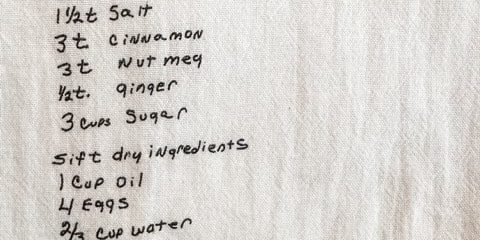 1 1/2 t Salt
3 t. Cinnamon
3 t Nutmeg
1/2 t. ginger
3 cups Sugar
Sift dry ingredients
1 Cup oil
4 Eggs
2/3 cup water